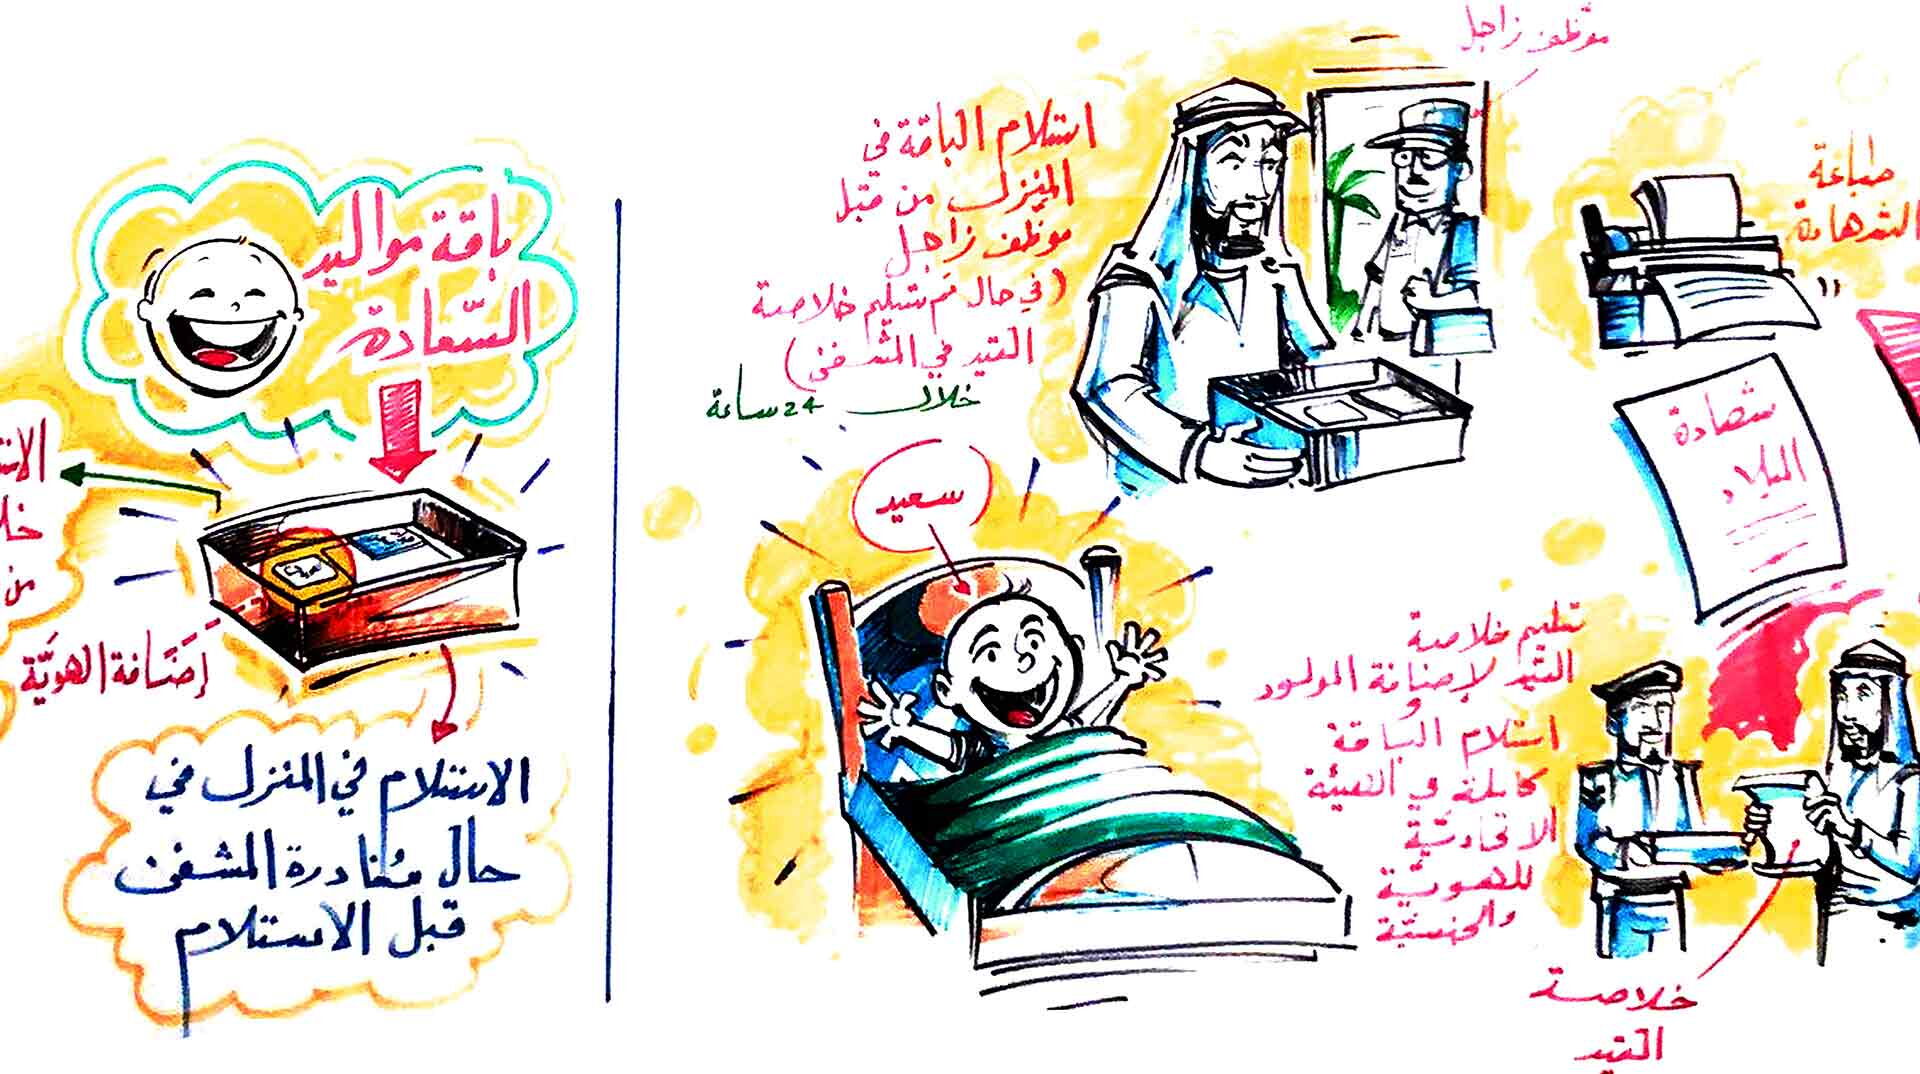 موظف زاجل
طباعة
الشهادة
شهادة
الميلاد
تسليم خلاصة
القيد لإضافة المولود
و
استلام الباقة
كاملة في الهيئة
الاتحادية
للهوية
والجنسية
خلاصة
القيد
استلام الباقة في
المنزل من قبل
موظف زاجل
(في حال تم تسليم خلاصة
القيد في المشفى)
خلال 24 ساعة
سعيد
باقة مواليد
السّعادة
خلا
من
إضَافة الهويَّة
الاستلام في المنزل في
حال مُغادرة المشفى
قبل الاستلام